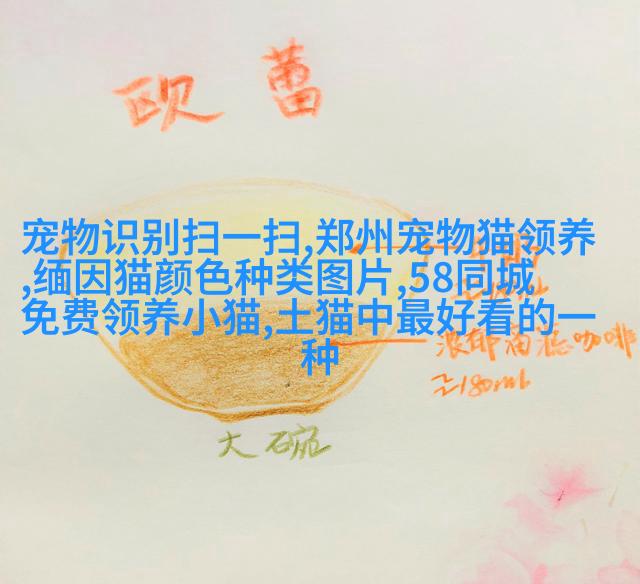 欧蕾
宠物识别扫一扫,郑州宠物猫领养
,缅因猫颜色种类图片,58同城
免费领养小猫,土猫中最好看的一
种
咖啡
≈180ml
大碗